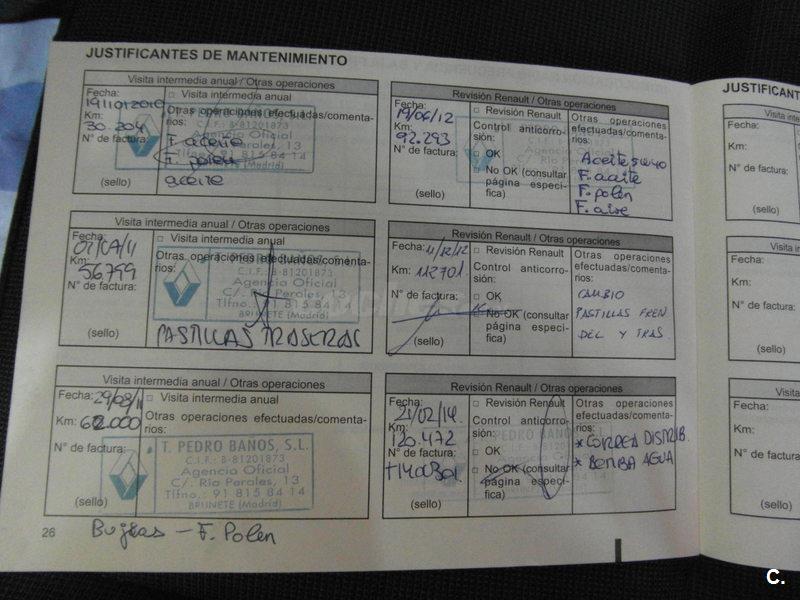 JUSTIFICANTES DE MANTENIMIENTO
Visita intermedia anual / Otras operaciones
Fecha:
19/10/2010
Km:
30.204
N° de factura:
(sello)
□ Visita intermedia anual
Otras operaciones efectuadas/comenta-
rios:
C.I.F.: B-81201873
Agencia Oficial
Perales, 13
Tlfno.: 91 815 84 14
BRUNETE (Madrid)
F. aceite
F. polen
aceite
Visita intermedia anual / Otras operaciones
Fecha:
01/07/11
Km:
56.799
N° de factura:
(sello)
□ Visita intermedia anual
Otras operaciones efectuadas/comenta-
rios:
C.I.F.: B-81201873
Agencia Oficial
C/. Río Perales, 13
Tlfno.: 91 815 84 14
BRUNETE (Madrid)
PASTILLAS TRASERAS
Visita intermedia anual / Otras operaciones
Fecha: 29/08/11
Km: 62.000
N° de factura:
(sello)
□ Visita intermedia anual
Otras operaciones efectuadas/comenta-
rios:
T. PEDRO BAÑOS, S.L.
C.I.F.: B-81201873
Agencia Oficial
C/. Río Perales, 13
Tlfno.: 91 815 84 14
BRUNETE (Madrid)
26
Bujias - F. Polen
Revisión Renault / Otras operaciones
Fecha:
19/06/12
Km:
92.293
N° de factura:
(sello)
□ Revisión Renault
Control anticorro-
sión:
□ OK
□ No OK (consultar
página especí-
fica)
Otras operaciones
efectuadas/comenta-
rios:
Aceite
F. aceite
F. polen
F. aire
Revisión Renault / Otras operaciones
Fecha: 11/12/12
Km: 112701
N° de factura:
(sello)
□ Revisión Renault
Control anticorro-
sión:
□ OK
□ No OK (consultar
página especí-
fica)
Otras operaciones
efectuadas/comenta-
rios:
CAMBIO
PASTILLAS FREN
DEL Y TRAS.
Revisión Renault / Otras operaciones
Fecha:
21/02/14.
Km:
120.472
N° de factura:
(sello)
□ Revisión Renault
Control anticorro-
sión:
□ OK
□ No OK (consultar
página especí-
fica)
Otras operaciones
efectuadas/comenta-
rios:
* CORREA DISTRIB.
* BOMBA AGUA
JUSTIFICANT
Visita inte
Fecha:
Km:
N° de factura:
(sello)
Visita in
Fecha:
Km:
N° de factura:
(sello)
Visita
Fecha:
Km:
N° de factura:
(sello)
C.